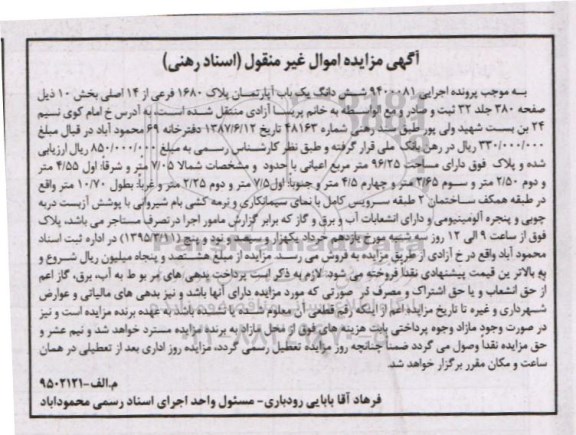 آگهی مزایده اموال غیر منقول (اسناد رهنی)
به موجب پرونده اجرایی ۹۴۰۰۰۸۱ شش دانگ یک باب آپارتمان پلاک ۱۶۸۰ فرعی از ۱۴ اصلی بخش ۱۰ ذیل
صفحه ۳۸۰ جلد ۳۲ ثبت و صادر و مع الواسطه به خانم پریسا آزادی منتقل شده است، به آدرس خ امام کوی نسیم
۲۴ بن بست شهید ولی پور طبق سند رهنی شماره ۴۸۱۶۳ تاریخ ۱۳۸۷/۶/۱۲ دفترخانه ۶۹ محمود آباد در قبال مبلغ
۳۳۰/۰۰۰/۰۰۰ ریال در رهن بانک ملی قرار گرفته و طبق نظر کارشناس رسمی به مبلغ ۸۵۰/۰۰۰/۰۰۰ ریال ارزیابی
شده و پلاک فوق دارای مساحت ۹۶/۲۵ متر مربع اعیانی با حدود و مشخصات شمالا ۷/۰۵ متر و شرقاً: اول ۴/۵۵ متر
و دوم ۲/۵۰ متر و سوم ۳/۶۵ متر و چهارم ۴/۵ متر و جنوباً: اول ۷/۵ متر و دوم ۲/۲۵ متر و غرباً: بطول ۱۰/۷۰ متر واقع
در طبقه همکف ساختمان ۲ طبقه سرویس کامل با نمای سیمانکاری و نرمه کشی بام شیروانی با پوشش آزبست دربه
چوبی و پنجره آلومینیومی و دارای انشعابات آب و برق و گاز که برابر گزارش مامور اجرا در تصرف مستاجر می باشد، پلاک
فوق از ساعت ۹ الی ۱۲ روز سه شنبه مورخ یازدهم خرداد یکهزار و سیصد و نود و پنج (۱۳۹۵/۳/۱۱) در اداره ثبت اسناد
محمود آباد واقع در خ آزادی از طریق مزایده به فروش می رسد. مزایده از مبلغ هشتصد و پنجاه میلیون ریال شروع و
به بالاترین قیمت پیشنهادی نقدا فروخته می شود. لازم به ذکر است پرداخت بدهی های مربوط به آب، برق، گاز اعم
از حق انشعاب و یا حق اشتراک و مصرف در صورتی که مورد مزایده دارای آنها باشد و نیز بدهی های مالیاتی و عوارض
شهرداری و غیره تا تاریخ مزایده اعم از اینکه رقم قطعی آن معلوم شده یا نشده باشد به عهده برنده مزایده است و نیز
در صورت وجود مازاد وجوه پرداختی بابت هزینه های فوق از محل مازاد به برنده مزایده مسترد خواهد شد و نیم عشر و
حق مزایده نقدا وصول می گردد ضمنا چنانچه روز مزایده تعطیل رسمی گردد مزایده روز اداری بعد از تعطیلی در همان
ساعت و مکان مقرر برگزار خواهد شد.
م.الف-۹۵۰۲۱۲۱
فرهاد آقا بابایی رودباری- مسئول واحد اجرای اسناد رسمی محمودآباد